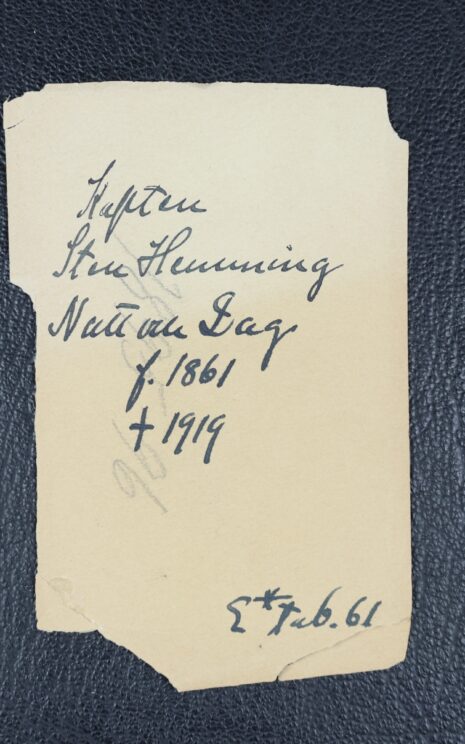 Kapten
Sten Hemming
Natt och Dag
f. 1861
† 1919
E* Tab. 61